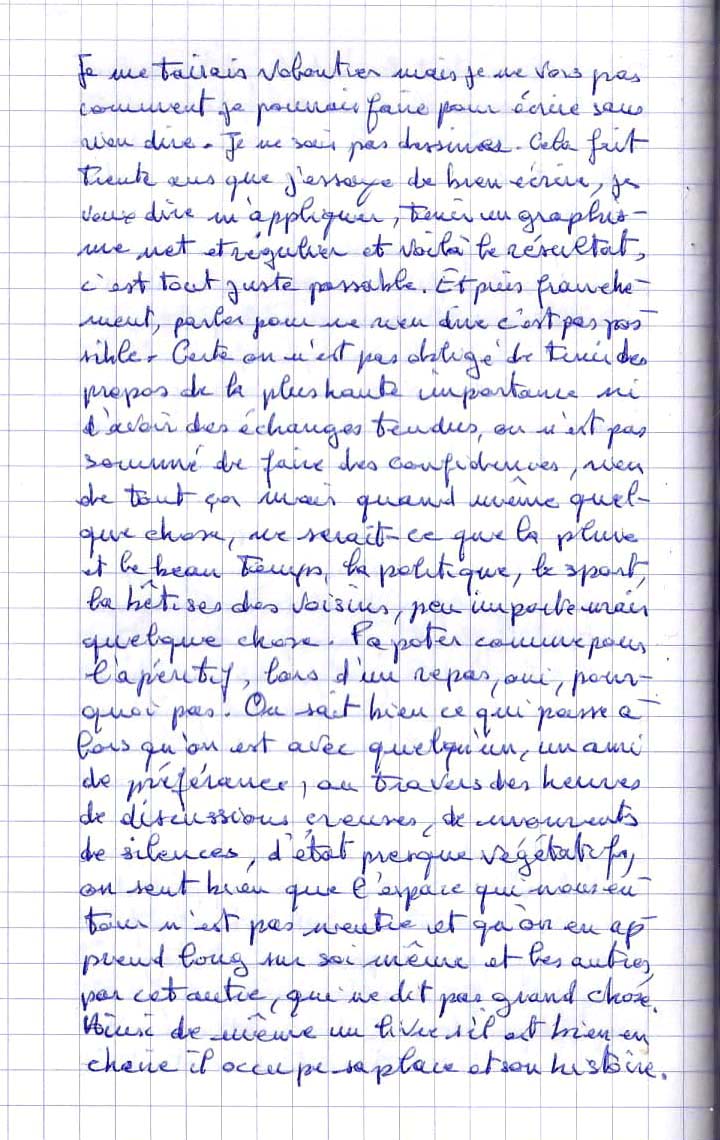 Je me tairais volontier mais je ne vois pas
comment je pourrais faire pour écrire sans
rien dire. Je ne sais pas dessiner. Cela fait
trente ans que j'essaye de bien écrire, je
veux dire m'appliquer, tenir un graphis-
me net et régulier et voilà le résultat,
c'est tout juste passable. Et puis franche-
ment, parler pour ne rien dire c'est pas pos
sible. Certe on n'est pas obligé de tenir des
propos de la plus haute importance ni
d'avoir des échanges tendus, on n'est pas
sommé de faire des confidences, rien
de tout ça mais quand même quel-
que chose, ne serait-ce que la pluie
et le beau temps, la politique, le sport,
la bêtises des voisins, peu importe mais
quelque chose. Papoter comme pour
l'apéritif, lors d'un repas, oui, pour-
quoi pas! On sait bien ce qui passe a-
lors qu'on est avec quelqu'un, un ami
de préférance, au travers des heures
de discussions creuses, de moments
de silences, d'état presque végétatifs,
on sent bien que l'espace qui nous en-
tour n'est pas neutre et qu'on en ap-
prend long sur soi même et les autres,
par cet autre, qui ne dit pas grand chose.
Ainsi de même un livre s'il est bien en
chaire il occupe sa place et son histoire.